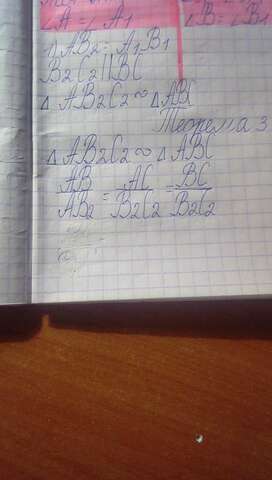 ∠A=∠A₁ ∠B=∠B₁
AB₂=A₁B₁
B₂C₂||BC
△AB₂C₂∾△ABC
Теорема 3
△AB₂C₂∾△ABC
AB/AB₂=AC/B₂C₂=BC/B₂C₂